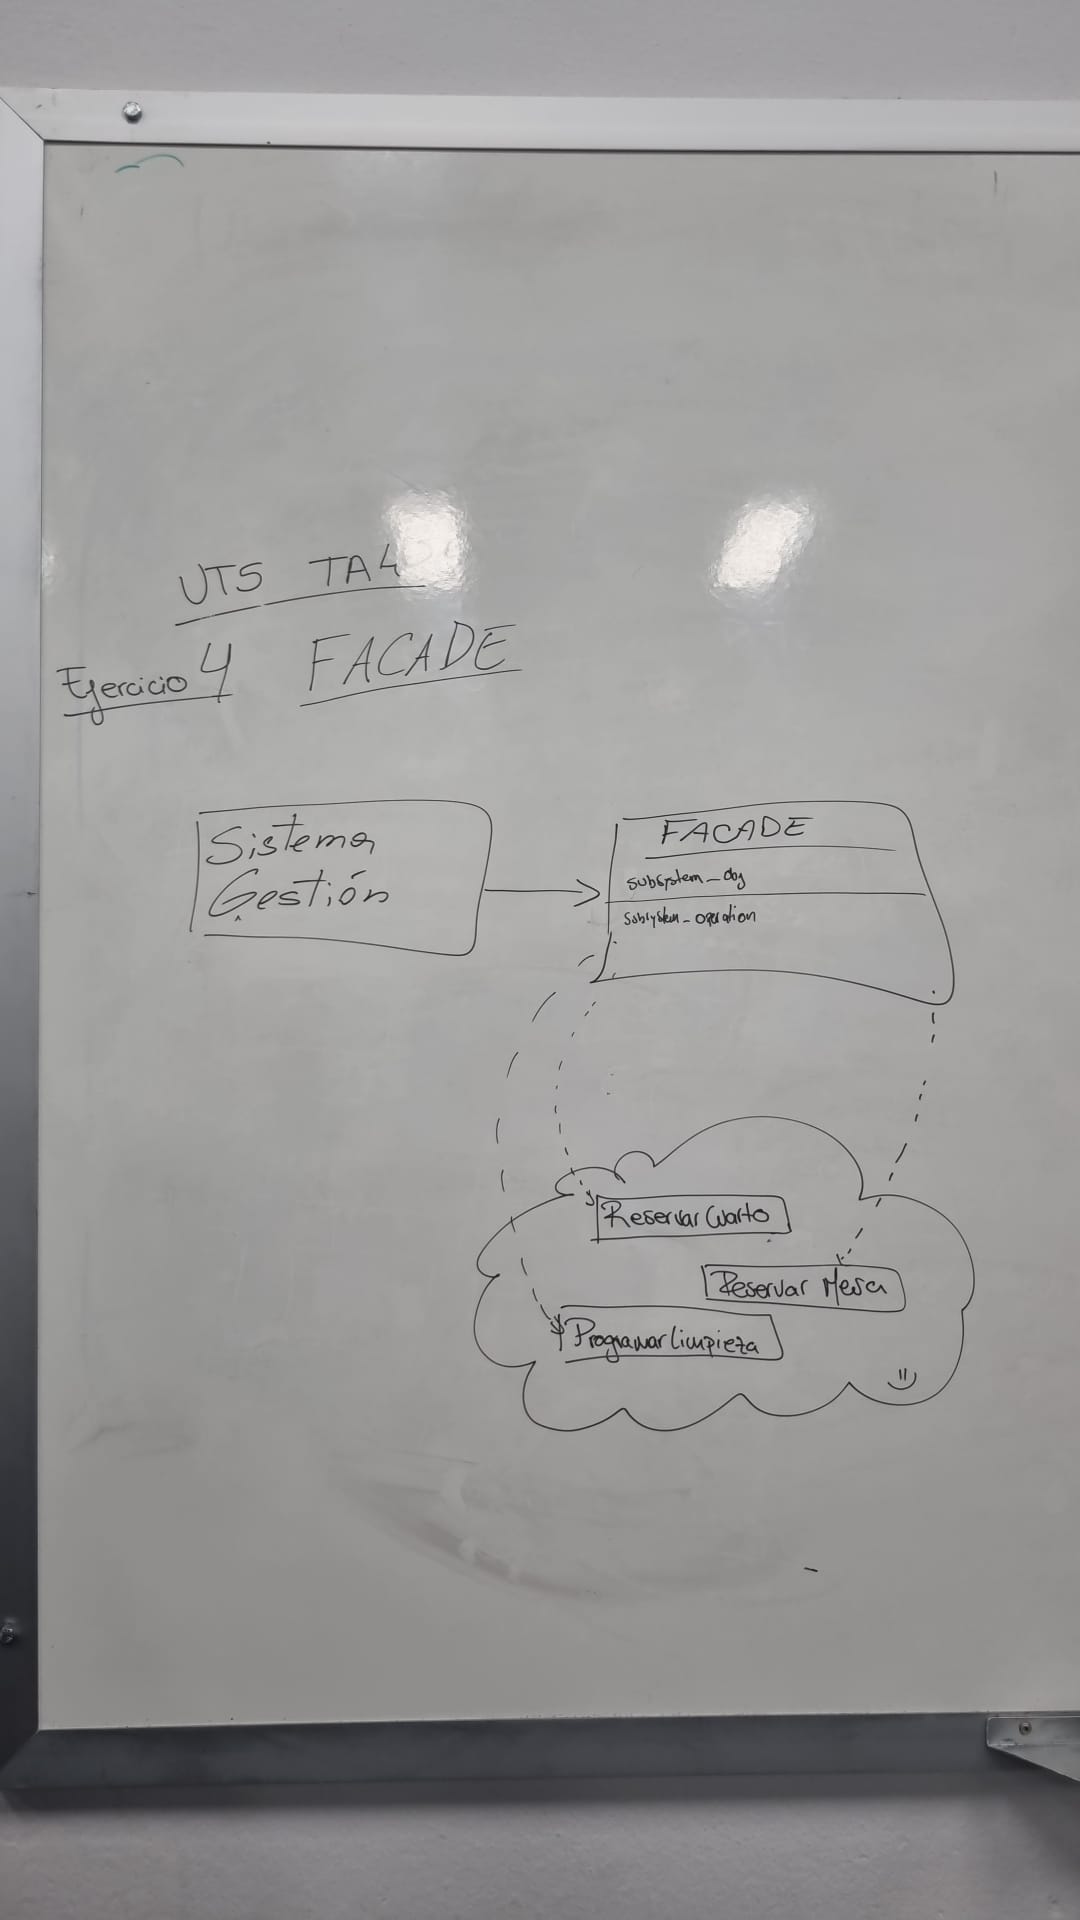 UT5 TA4
Ejercicio 4 FACADE
Sistema
Gestión
FACADE
subsystem_obj
subsystem_operation
Reservar Cuarto
Reservar Mesa
Programar Limpieza